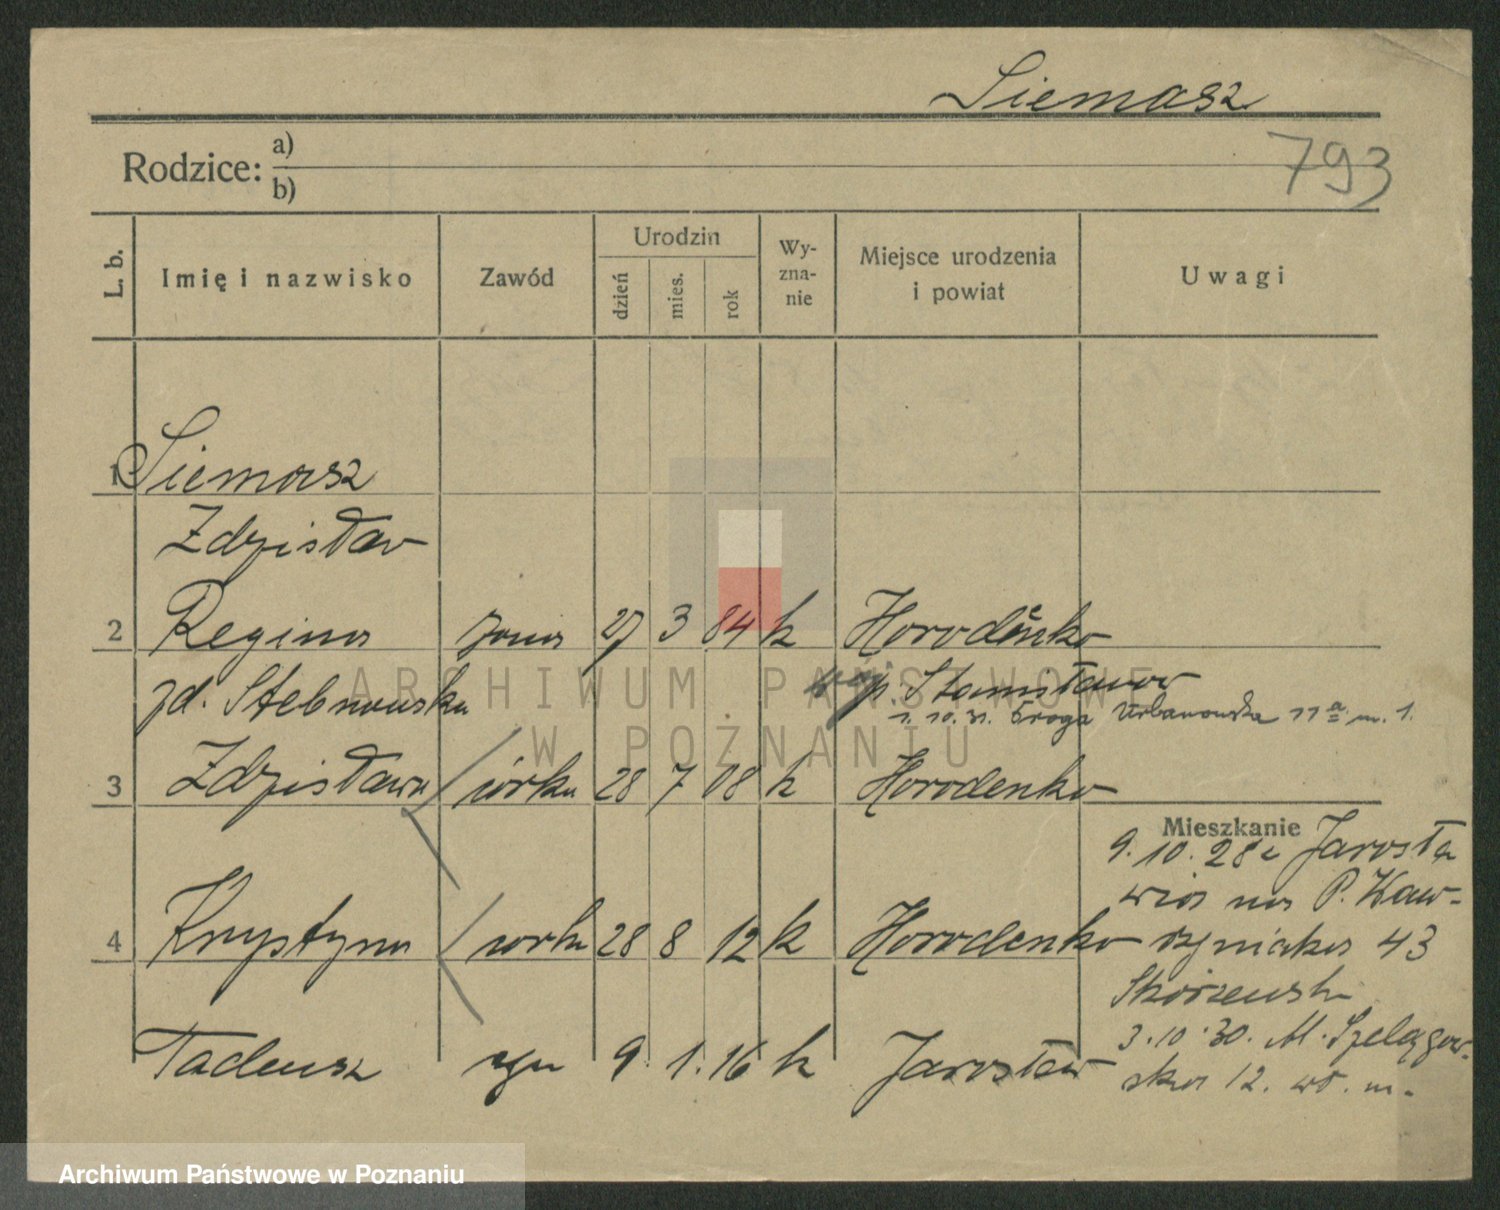 Siemasz
793
Rodzice: a)
b)
L. b. Imię i nazwisko Zawód Urodzin dzień mies. rok Wy-zna-nie Miejsce urodzenia i powiat Uwagi
1 Siemasz
Zdzisław
2 Regina żona 27 3 84 k Horodenko
zd. Stebnowska woj. Stanisławow
1. 10. 31. Droga Urbanowska 11a m. 1.
3 Zdzisława córka 28 7 08 k Horodenko
Mieszkanie
9. 10. 28 z Jarosła
wia na P. Waw-
4 Krystyna córka 28 8 12 k Horodenko rzyniaka 43
3. 10. 30. M. Szelągow-
Tadeusz syn 9. 1. 16 k Jarosław
ska 12. wł. m.
ARCHIWUM PAŃSTWOWE
W POZNANIU
Archiwum Państwowe w Poznaniu